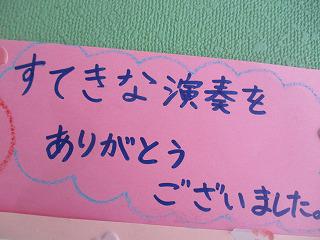 すてきな演奏を
ありがとう
ございました。